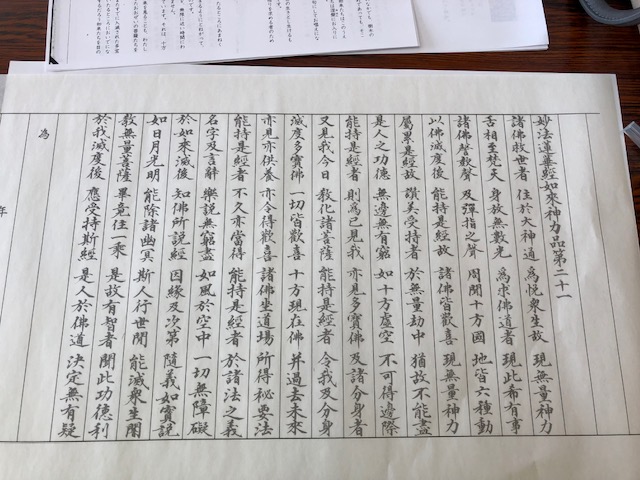 妙法蓮華經如來神力品第二十一
諸佛救世者 住於大神通 為悅衆生故 現無量神力
舌相至梵天 身放無數光 為求佛道者 現此希有事
諸佛謦欬聲 及彈指之聲 周聞十方國 地皆六種動
以佛滅度後 能持是經故 諸佛皆歡喜 現無量神力
屬累是經故 讃美受持者 於無量劫中 猶故不能盡
是人之功德 無邊無有窮 如十方虛空 不可得邊際
能持是經者 則為已見我 亦見多寶佛 及諸分身者
又見我今日 教化諸菩薩 能持是經者 令我及分身
滅度多寶佛 一切皆歡喜 十方現在佛 并過去未來
亦見亦供養 亦令得歡喜 諸佛坐道場 所得祕要法
能持是經者 不久亦當得 能持是經者 於諸法之義
名字及言辭 樂説無窮盡 如風於空中 一切無障礙
於如來滅後 知佛所説經 因緣及次第 隨義如實説
如日月光明 能除諸幽冥 斯人行世間 能滅衆生闇
教無量菩薩 畢竟住一乘 是故有智者 聞此功德利
於我滅度後 應受持斯經 是人於佛道 決定無有疑
為
年